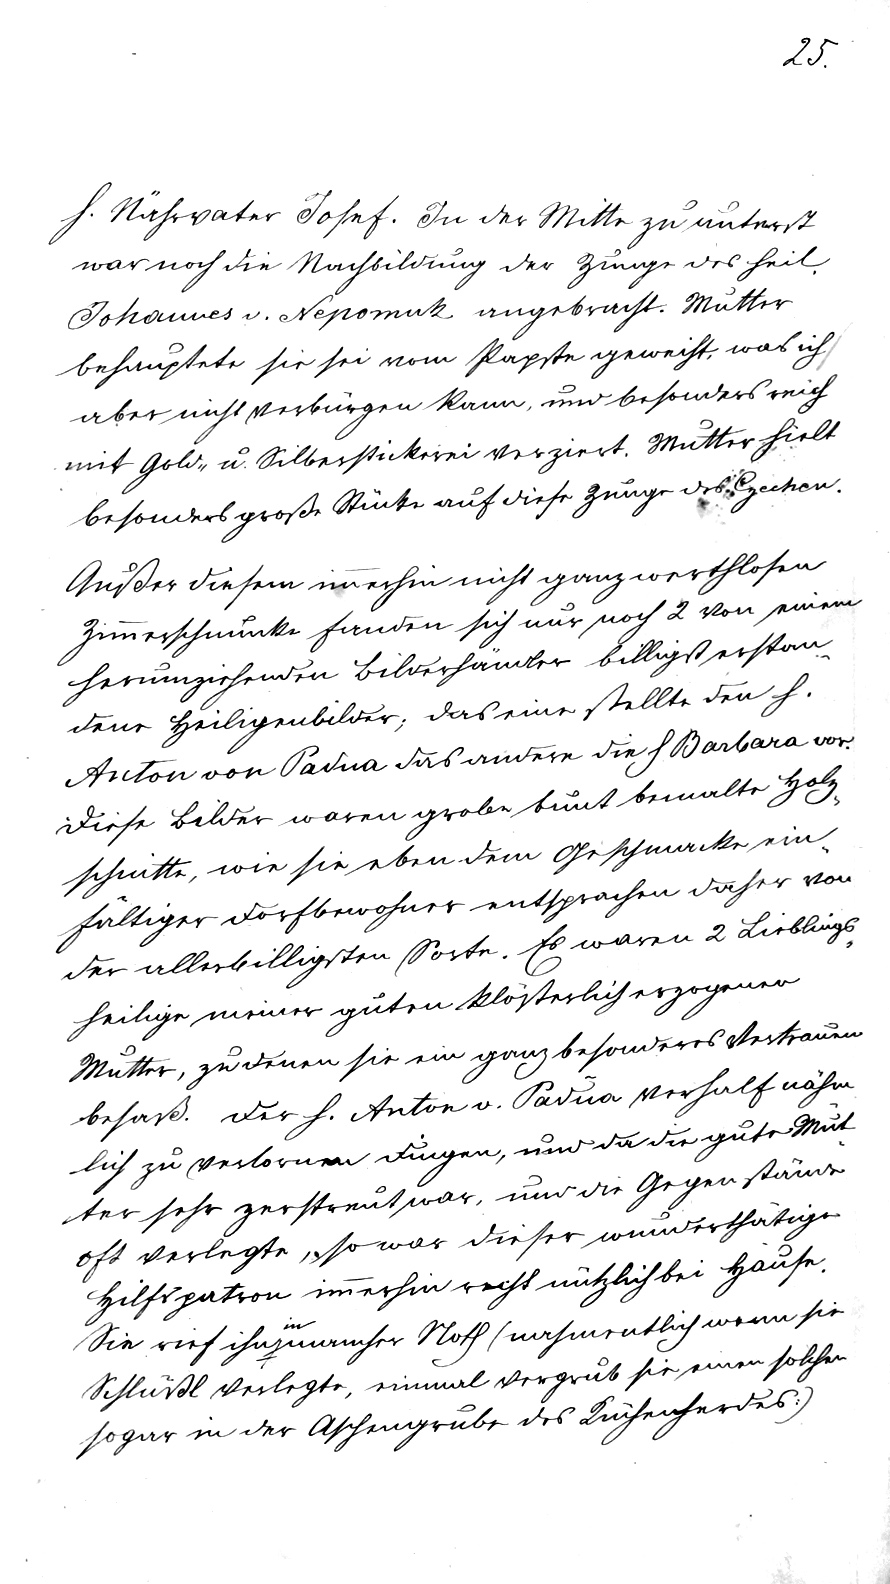 25.
h. Nährvater Josef. In der Mitte zu unterst
war noch die Nachbildung der Zunge des heil.
Johannes v. Nepomuk angebracht. Mutter
behauptete sie sei vom Papste geweiht, was ich
aber nicht verbürgen kann, und besonders reich
mit Gold- u. Silberstickerei verziert. Mutter hielt
besonders große Stücke auf diese Zunge des Czechen.
Außer diesem im̅erhin nicht ganz werthlosen
Zim̅erschmucke fanden sich nur noch 2 von einem
herumziehenden Bilderhändler billigst erstan-
dene Heiligenbilder; das eine stellte den h.
Anton von Padua das andere die h Barbara vor.
Diese Bilder waren grobe bunt bemalte Holz-
schnitte, wie sie eben dem Geschmacke ein-
fältiger Dorfbewohner entsprachen daher von
der allerbilligsten Sorte. Es waren 2 Lieblings-
heilige meiner guten klösterlich erzogenen
Mutter, zu denen sie ein ganz besonderes Vertrauen
besaß. Der h. Anton v. Padua verhalf nähm
lich zu verlornen Dingen, und da die gute Mut-
ter sehr zerstreut war, und die Gegenstände
oft verlegte, so war dieser wunderthätige
Hilfspatron im̅erhin recht nützlich bei Hause.
Sie rief ihn in mancher Noth (nahmentlich wenn sie
Schlüßl verlegte, einmal vergrub sie einen solchen
sogar in der Aschengrube des Küchenherdes:)